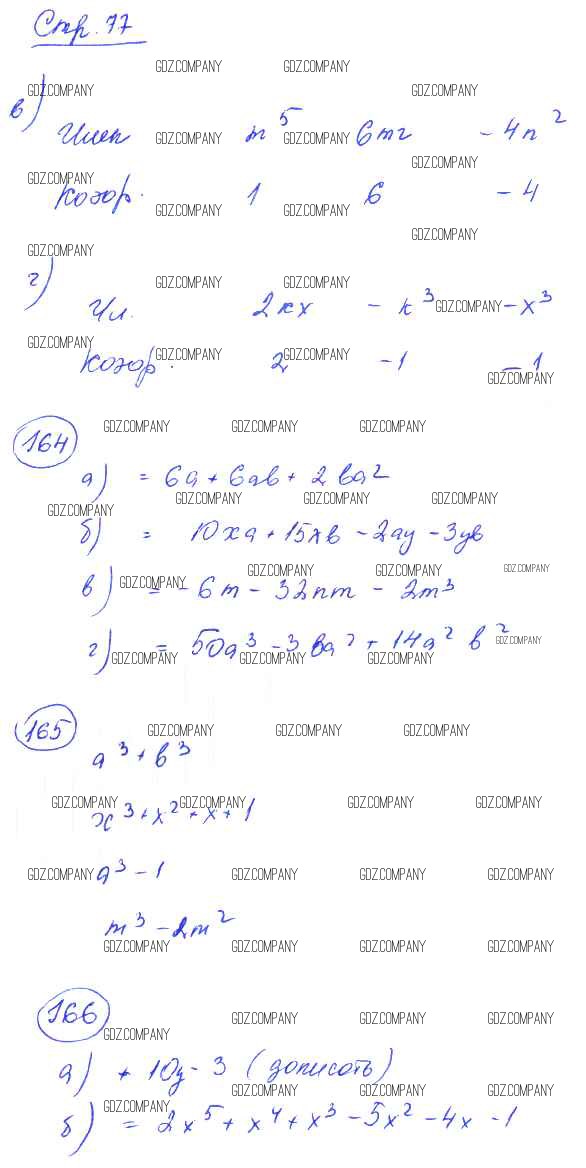 Стр. 77
GDZ.COMPANY GDZ.COMPANY
GDZ.COMPANY GDZ.COMPANY
в)
Член GDZ.COMPANY m⁵ GDZ.COMPANY 6mz - 4n²
GDZ.COMPANY
GDZ.COMPANY
Коэфр. GDZ.COMPANY 1 GDZ.COMPANY 6 - 4
GDZ.COMPANY
GDZ.COMPANY
г) GDZ.COMPANY GDZ.COMPANY
Чл. 2кх - к³ GDZ.COMPANY - х³
GDZ.COMPANY
Коэфр. GDZ.COMPANY 2 GDZ.COMPANY -1 - 1
GDZ.COMPANY
164 GDZ.COMPANY GDZ.COMPANY GDZ.COMPANY
а) = 6а + 6ав + 2ва²
GDZ.COMPANY GDZ.COMPANY GDZ.COMPANY
GDZ.COMPANY
б) = 10ха + 15хв - 2ау - 3ув
GDZ.COMPANY GDZ.COMPANY GDZ.COMPANY
в) GDZ.COMPANY = - 6m - 32nm - 2m³
г) = 50а³ - 3ва² + 14а² в² GDZ.COMPANY
GDZ.COMPANY GDZ.COMPANY GDZ.COMPANY
165 GDZ.COMPANY GDZ.COMPANY GDZ.COMPANY
а³ + в³
GDZ.COMPANY GDZ.COMPANY GDZ.COMPANY GDZ.COMPANY
х³ + х² + х + 1
GDZ.COMPANY а³ - 1 GDZ.COMPANY GDZ.COMPANY GDZ.COMPANY
m³ - 2m²
GDZ.COMPANY GDZ.COMPANY GDZ.COMPANY GDZ.COMPANY
166 GDZ.COMPANY GDZ.COMPANY GDZ.COMPANY
GDZ.COMPANY
а) + 10у - 3 (дописать)
GDZ.COMPANY GDZ.COMPANY GDZ.COMPANY
GDZ.COMPANY
б) = 2х⁵ + х⁴ + х³ - 5х² - 4х - 1